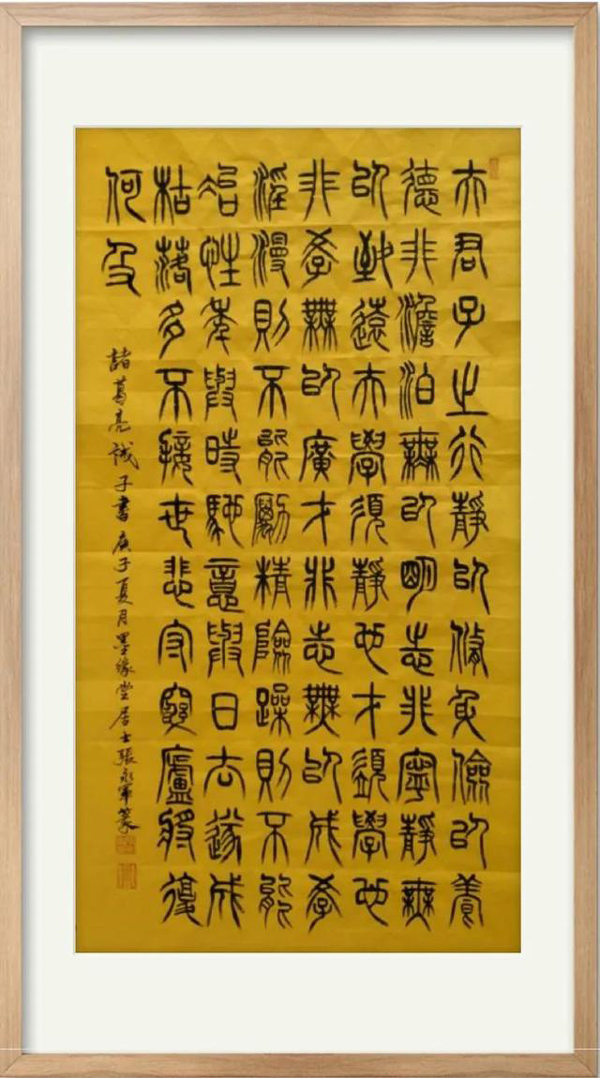 夫君子之行靜以修身儉以養
德非澹泊無以明志非寧靜無
以致遠夫學須靜也才須學也
非學無以廣才非志無以成學
淫漫則不能勵精險躁則不能
冶性年與時馳意與日去遂成
枯落多不接世悲守窮廬將復
何及
諸葛亮誡子書庚子夏月墨緣堂居士張永軍篆